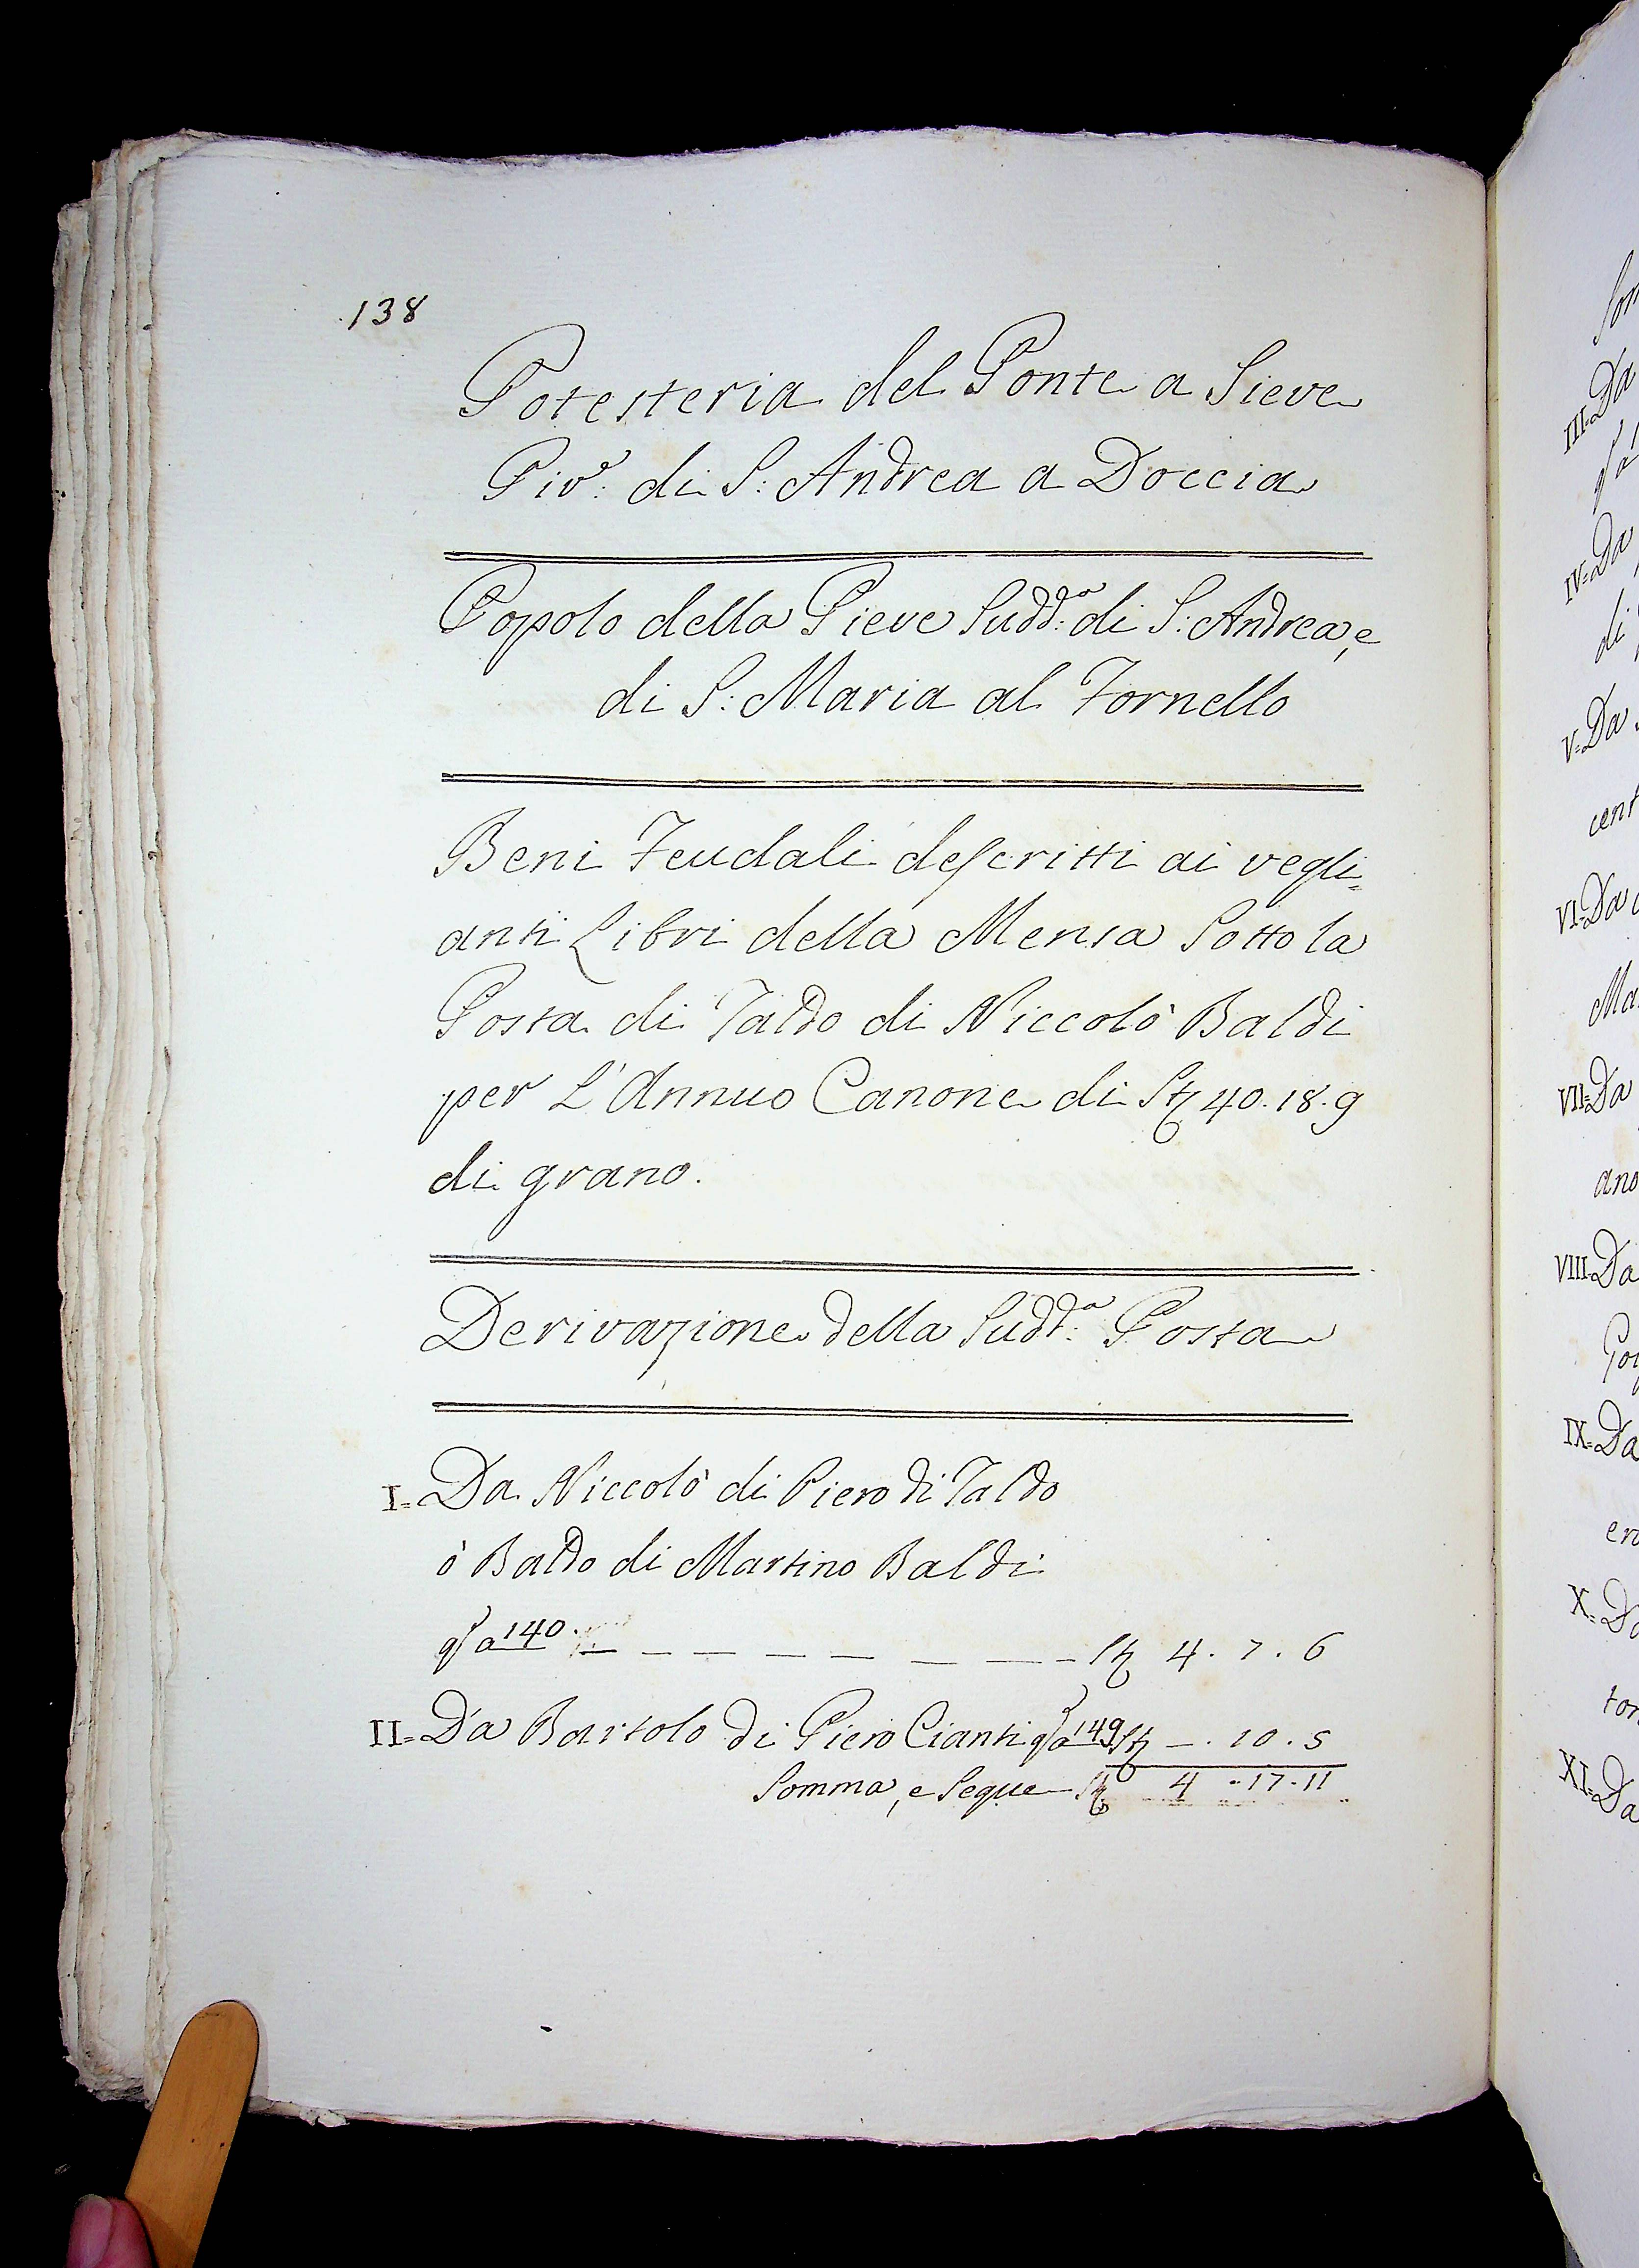 138
Potesteria del Ponte a Sieve
Piv.e di S: Andrea a Doccia
Popolo della Pieve Sudd:a di S: Andrea, e
di S: Maria al Fornello
Beni Feudali descritti ai vegli=
anti Libri della Mensa Sotto la
Posta di Taldo di Niccolò Baldi
per L'Annuo Canone di St 40.18.9
di grano.
Derivazione della Sudd:a Posta
I= Da Niccolò di Piero di Taldo
ò Baldo di Martino Baldi
qsa 140. — — — — — — — St 4. 7. 6
II= Da Bartolo di Piero Cianti qsa 149 St —. 10. 5
Somma, e Segue St 4 .17.11
III= Da
IV= Da
di
V= Da
cent
VI= Da
Ma
VII= Da
ano
VIII= Da
IX= Da
ero
X= Da
tor
XI= Da